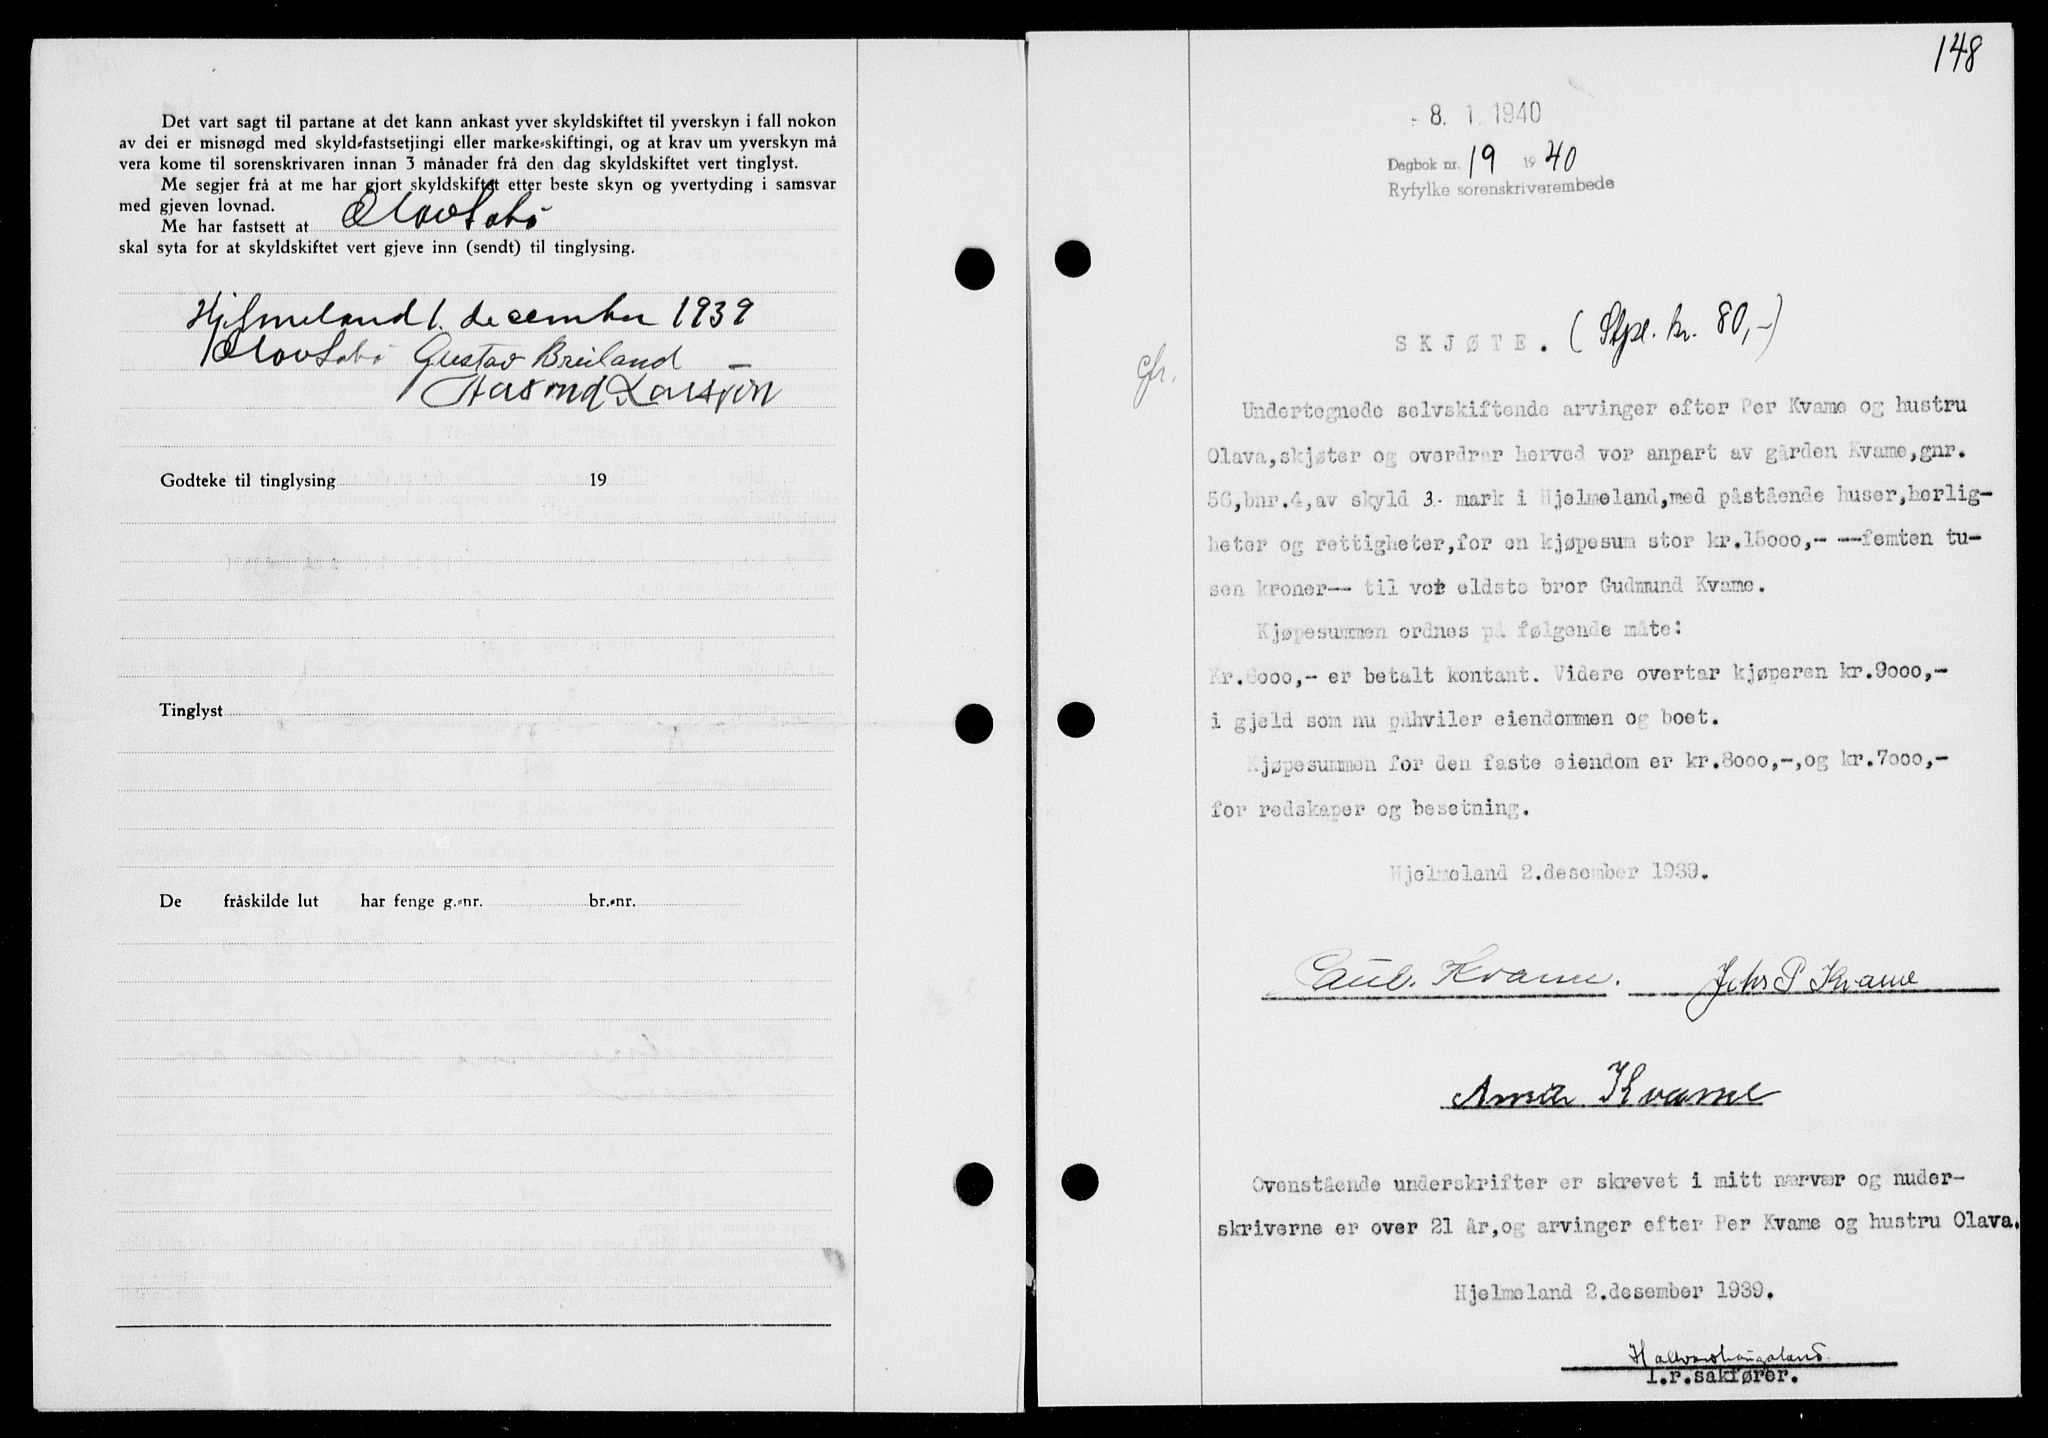 Det vart sagt til partane at det kann ankast yver skyldskiftet til yverskyn i fall nokon
av dei er misnøgd med skyld-fastsetjingi eller marke-skiftingi, og at krav um yverskyn må
vera kome til sorenskrivaren innan 3 månader frå den dag skyldskiftet vert tinglyst.
Me segjer frå at me har gjort skyldskiftet etter beste skyn og yvertyding i samsvar
med gjeven lovnad.
Me har fastsett at Olov Sabø
skal syta for at skyldskiftet vert gjeve inn (sendt) til tinglysing.
Hjelmeland 1. december 1939
Olov Sabø Gustav Breiland
Aasmd Larsson
Godteke til tinglysing 19
Tinglyst
De fråskilde lut har fenge g.-nr. br.-nr.
148
- 8. 1. 1940
Dagbok nr. 19 1940
Ryfylke sorenskriverembede
SKJØTE. (Stpl. kr. 80,-)
cfr.
Undertegnede selvskiftende arvinger efter Per Kvame og hustru
Olava, skjøter og overdrar herved vor anpart av gården Kvame, gnr.
56, bnr. 4, av skyld 3.- mark i Hjelmeland, med påstående huser, herlig-
heter og rettigheter, for en kjøpesum stor kr.15000,- --femten tu-
sen kroner-- til vor eldste bror Gudmund Kvame.
Kjøpesummen ordnes på følgende måte:
Kr.6000,- er betalt kontant. Videre overtar kjøperen kr.9000,-
i gjeld som nu påhviler eiendommen og boet.
Kjøpesummen for den faste eiendom er kr.8000,-, og kr.7000,-
for redskaper og besetning.
Hjelmeland 2.desember 1939.
Kvame. John P Kvame
Anna Kvame
Ovenstående underskrifter er skrevet i mitt nærvær og nuder-
skriverne er over 21 år, og arvinger efter Per Kvame og hustru Olava.
Hjelmeland 2.desember 1939.
Halvard Haugaland
l.r.sakfører.